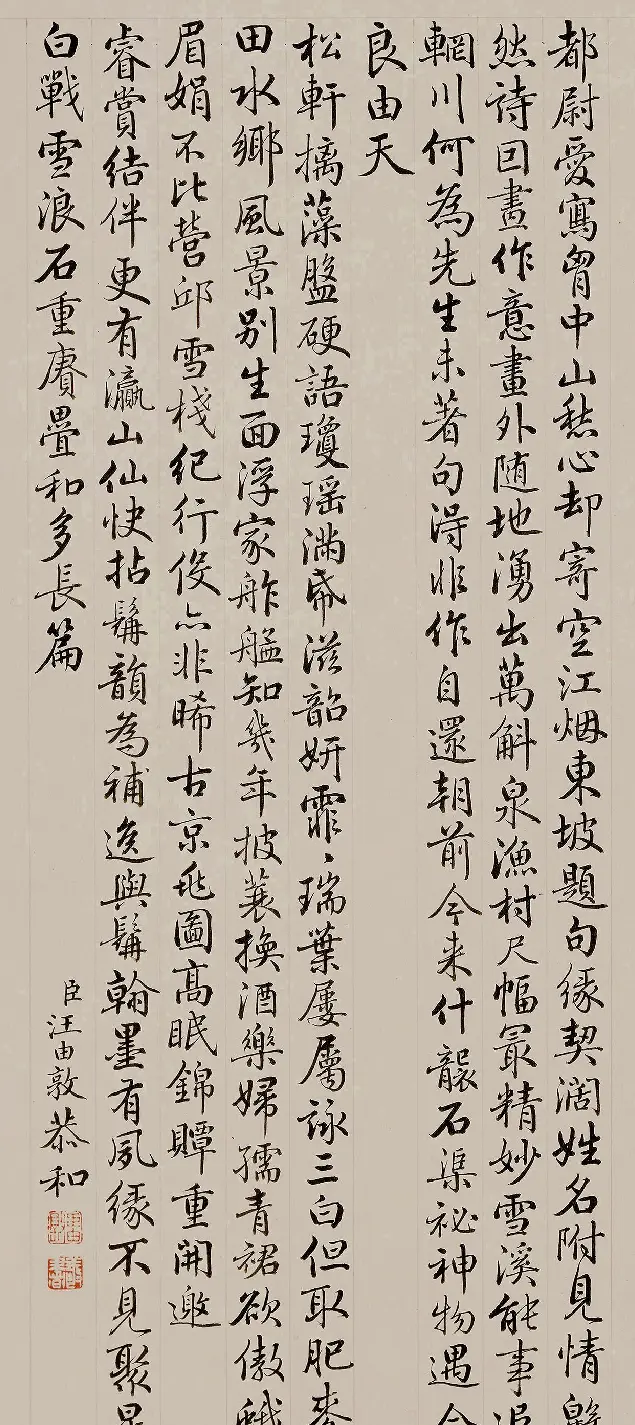 都尉愛寫胷中山愁心却寄空江烟東坡題句緣契闊姓名附見情
然詩回畫作意畫外随地湧出萬斛泉漁村尺幅冣精妙雪溪能事
輞川何為先生未著句得非作自還朝前今来什襲石渠祕神物遇
良由天
松軒摛藻盤硬語瓊瑶滿帋滋韶妍霏、瑞葉屢屬詠三白但取肥麥
田水鄉風景别生面浮家舴艋知幾年披蓑換酒樂婦孺青裙欲傲
眉娟不比營邱雪棧紀行役亦非晞古京兆圖高眠錦贉重開邀
睿賞結伴更有瀛山仙快拈髯韻為補逸與髯翰墨有夙緣不見聚星
白戰雪浪石重賡疊和多長篇
臣汪由敦恭和